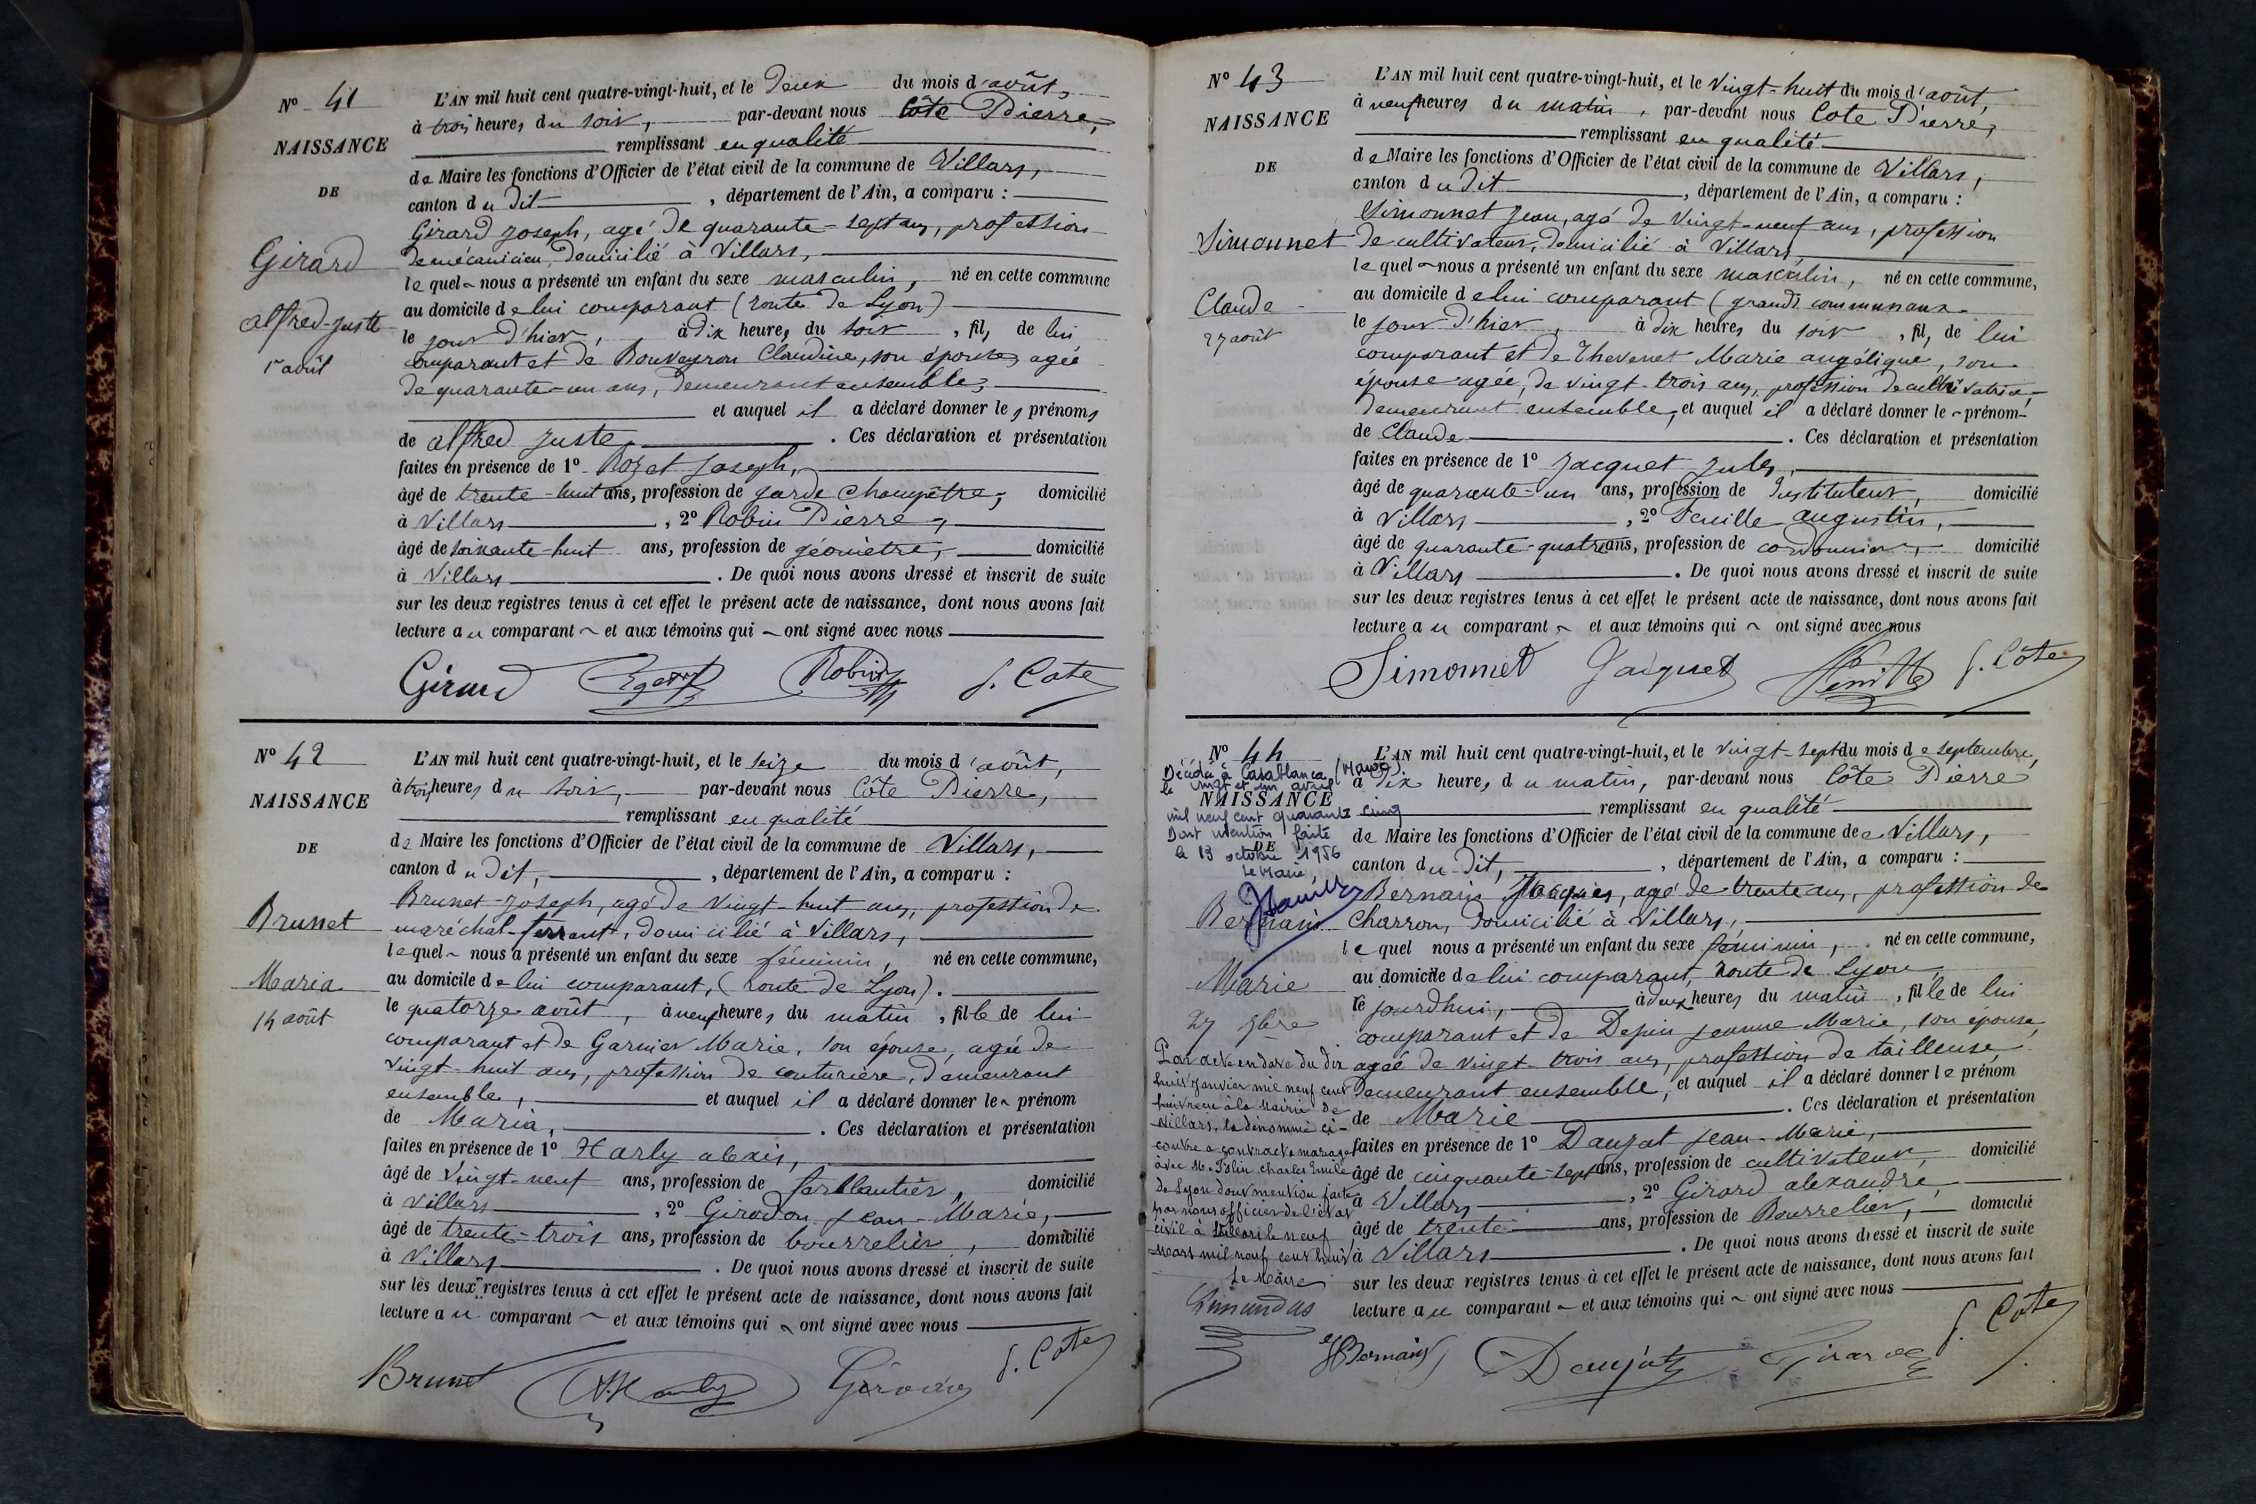 N° 41
NAISSANCE
DE
Girard
alfred-juste
1er août
L'AN mil huit cent quatre-vingt-huit, et le Deux du mois d'août,
à trois heures du soir, par-devant nous Côte Pierre,
remplissant en qualité
de Maire les fonctions d'Officier de l'état civil de la commune de Villars,
canton du dit , département de l'Ain, a comparu :
Girard Joseph, agé de quarante-sept ans, profession
de mécanicien, domicilié à Villars,
lequel nous a présenté un enfant du sexe masculin, né en cette commune
au domicile de lui comparant (route de Lyon)
le jour d'hier, à dix heures du soir , fils de lui
comparant et de Bouveyron Claudine, son épouse, agée
de quarante-un ans, demeurant ensemble,
et auquel il a déclaré donner les prénoms
de alfred juste . Ces déclaration et présentation
faites en présence de 1° Rozet Joseph,
âgé de trente-huit ans, profession de garde champêtre, domicilié
à Villars , 2° Robin Pierre,
âgé de soixante-huit ans, profession de géomètre, domicilié
à Villars . De quoi nous avons dressé et inscrit de suite
sur les deux registres tenus à cet effet le présent acte de naissance, dont nous avons fait
lecture au comparant et aux témoins qui ont signé avec nous
Girard Robin J. Côte
N° 42
NAISSANCE
DE
Brunet
Maria
14 août
L'AN mil huit cent quatre-vingt-huit, et le seize du mois d'août,
à trois heures du soir, par-devant nous Côte Pierre,
remplissant en qualité
de Maire les fonctions d'Officier de l'état civil de la commune de Villars,
canton du dit, , département de l'Ain, a comparu :
Brunet Joseph, agé de vingt-huit ans, profession de
maréchal-ferrant, domicilié à Villars,
lequel nous a présenté un enfant du sexe féminin, né en cette commune,
au domicile de lui comparant, (route de Lyon).
le quatorze août, à neuf heures du matin , fille de lui
comparant et de Garnier Marie, son épouse, agée de
vingt-huit ans, profession de couturière, demeurant
ensemble, et auquel il a déclaré donner le prénom
de Maria, . Ces déclaration et présentation
faites en présence de 1° Harly alexis,
âgé de vingt-neuf ans, profession de ferblantier, domicilié
à Villars , 2° Girodon Jean-Marie,
âgé de trente-trois ans, profession de bourrelier, domicilié
à Villars . De quoi nous avons dressé et inscrit de suite
sur les deux registres tenus à cet effet le présent acte de naissance, dont nous avons fait
lecture au comparant et aux témoins qui ont signé avec nous
Brunet A. Harly Girodon J. Côte
N° 43
NAISSANCE
DE
Simonnet
Claude
27 août
L'AN mil huit cent quatre-vingt-huit, et le vingt-huit du mois d'août,
à neuf heures du matin, par-devant nous Cote Pierre,
remplissant en qualité
de Maire les fonctions d'Officier de l'état civil de la commune de Villars,
canton du dit , département de l'Ain, a comparu :
Simonnet Jean, agé de vingt-neuf ans, profession
de cultivateur, domicilié à Villars,
lequel nous a présenté un enfant du sexe masculin, né en cette commune,
au domicile de lui comparant (grands communaux
le jour d'hier, à dix heures du soir , fils de lui
comparant et de Thevenet Marie angélique, son
épouse agée, de vingt-trois ans, profession de cultivatrice
demeurant ensemble, et auquel il a déclaré donner le prénom
de Claude . Ces déclaration et présentation
faites en présence de 1° Jacquet Jules,
âgé de quarante-un ans, profession de Instituteur, domicilié
à Villars , 2° Feuille augustin,
âgé de quarante-quatre ans, profession de cordonnier, domicilié
à Villars . De quoi nous avons dressé et inscrit de suite
sur les deux registres tenus à cet effet le présent acte de naissance, dont nous avons fait
lecture au comparant et aux témoins qui ont signé avec nous
Simonnet Jacquet Feuille J. Côte
N° 44
Décédée à Casablanca (Maroc)
le vingt et un avril
NAISSANCE
mil neuf cent quarante cinq
Dont mention faite
DE
le 13 octobre 1956
Le Maire,
Bernain
Marie
27 7bre
Par acte en date du dix
huit janvier mil neuf cent
huit reçu à la Mairie de
Villars, la dénommée ci-
contre a contracté mariage
avec Mr Jolin Charles Emile
de Lyon dont mention faite
par nous officier de l'état
civil à Villars le neuf
Mars mil neuf cent huit
Le Maire
L'AN mil huit cent quatre-vingt-huit, et le vingt-sept du mois de septembre,
à dix heures du matin, par-devant nous Côte Pierre
remplissant en qualité
de Maire les fonctions d'Officier de l'état civil de la commune de Villars,
canton du dit, , département de l'Ain, a comparu :
Bernain Jacques, agé de trente ans, profession de
Charron, domicilié à Villars,
lequel nous a présenté un enfant du sexe féminin, né en cette commune,
au domicile de lui comparant, route de Lyon,
le jourdhui, à deux heures du matin , fille de lui
comparant et de Depin Jeanne Marie, son épouse,
agée de vingt-trois ans, profession de tailleuse,
demeurant ensemble, et auquel il a déclaré donner le prénom
de Marie . Ces déclaration et présentation
faites en présence de 1° Daujat Jean-Marie,
âgé de cinquante-sept ans, profession de cultivateur, domicilié
à Villars , 2° Girard alexandre,
âgé de trente ans, profession de Bourrelier, domicilié
à Villars . De quoi nous avons dressé et inscrit de suite
sur les deux registres tenus à cet effet le présent acte de naissance, dont nous avons fait
lecture au comparant et aux témoins qui ont signé avec nous
Bernain Daujat Girard J. Côte